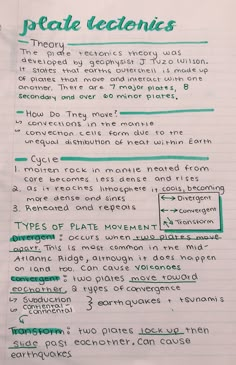 plate tectonics
Theory
The plate tectonics theory was
developed by geophysist J Tuzo Wilson.
It states that earths outershell is made up
of plates that move and interact with one
another. There are 7 major plates, 8
secondary and over 60 minor plates.
How Do They Move?
↳ convections in the mantle
↳ convection cells form due to the
unequal distribution of heat within Earth
Cycle
1. molten rock in mantle heated from
core becomes less dense and rises
2. as it reaches lithosphere it cools, becoming
more dense and sinks
3. Reheated and repeats
↔ Divergent
→← convergent
Transform
TYPES OF PLATE MOVEMENT
Divergent: occurs when two plates move
apart. This is most common in the mid-
Atlantic Ridge, although it does happen
on land too. Can cause volcanoes
convergent: two plates move toward
eachother, 2 types of convergence
↳ Subduction
↳ continental -
continental
} earthquakes + tsunamis
Transform: two plates lock up then
slide past eachother, can cause
earthquakes